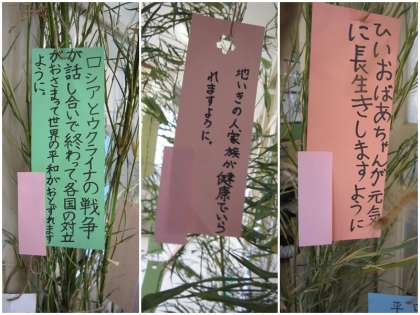 ロシアとウクライナの戦争
が話し合いで終わって、各国の対立
がおさまって世界の平和がおとずれます
ように。
地いきの人家族が健康でいら
れますように。
ひいおばあちゃんが元気
に長生きしますように
平